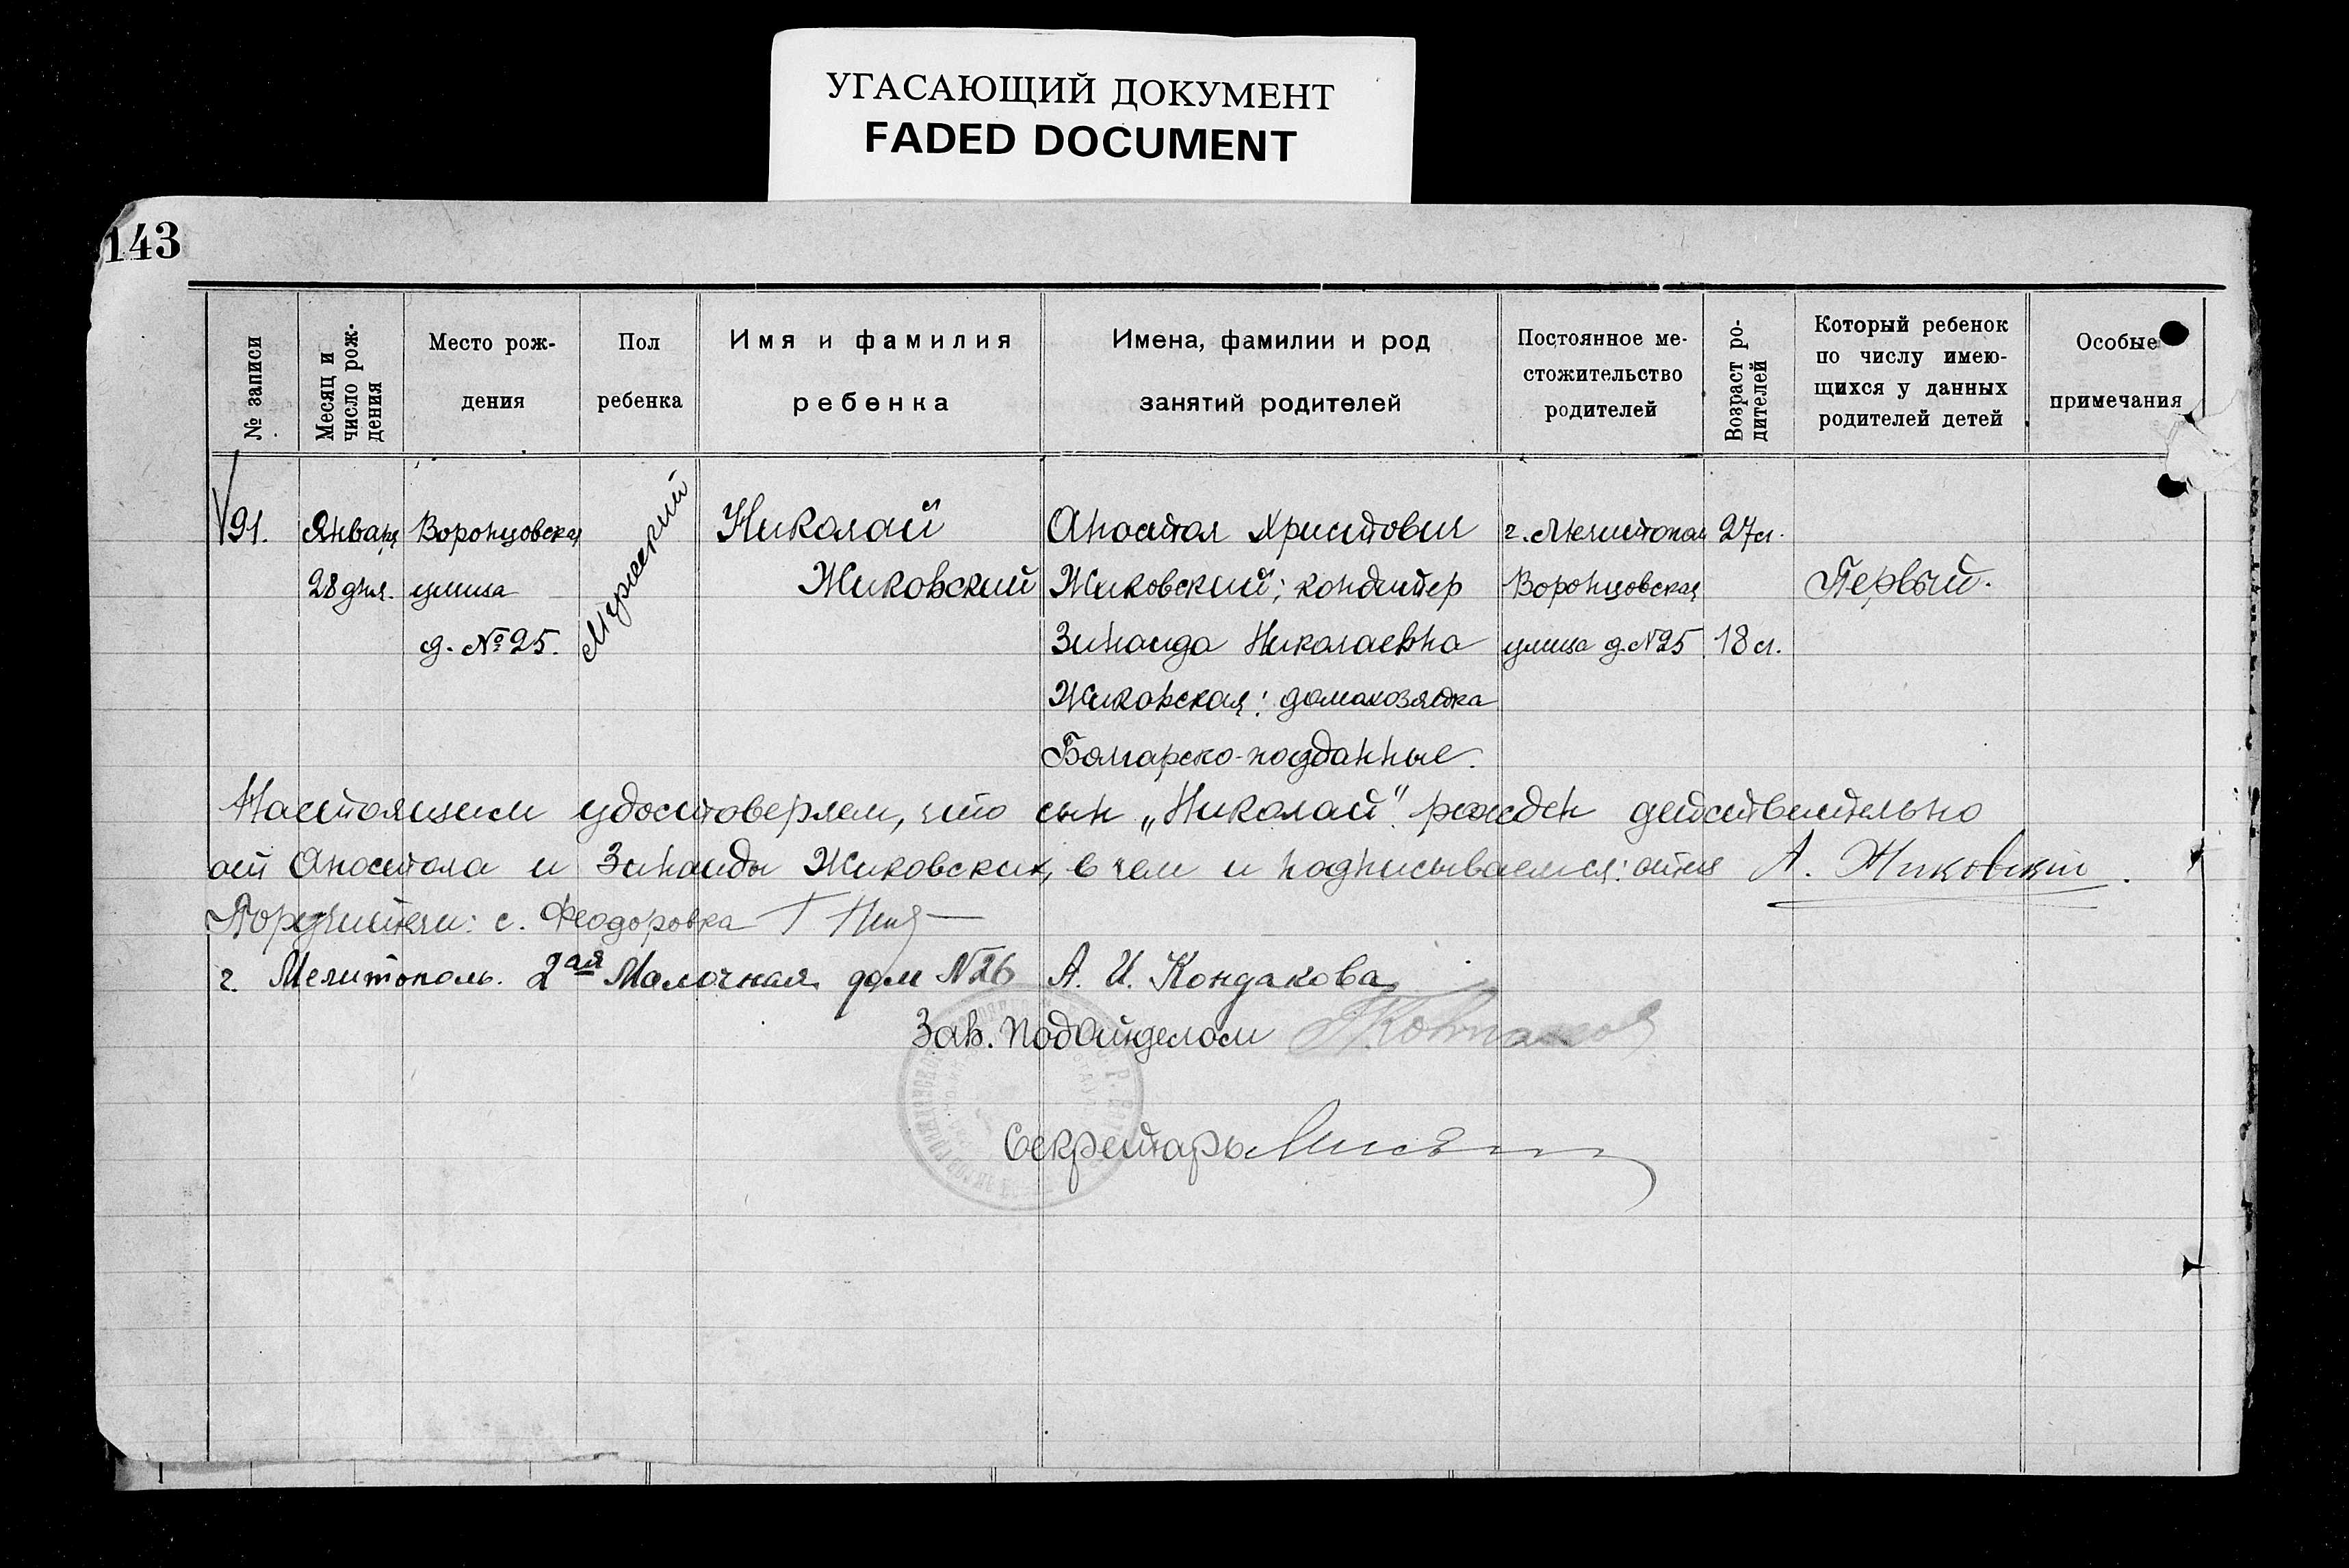 УГАСАЮЩИЙ ДОКУМЕНТ
FADED DOCUMENT
143
№ записи
Месяц и
число рож-
дения
Место рож-
дения
Пол
ребенка
Имя и фамилия
ребенка
Имена, фамилии и род
занятий родителей
Постоянное ме-
стожительство
родителей
Возраст ро-
дителей
Который ребенок
по числу имею-
щихся у данных
родителей детей
Особые
примечания
91.
Января
28 дня.
Воронцовская
улица
д. № 25.
Мужеский
Николай
Жиковский
Апостол Христович
Жиковский; кондитер
Зинаида Николаевна
Жиковская; домахозяйка
Болгарско-подданные.
г. Мелитополь
Воронцовская
улица д. N 25
27 л.
18 л.
Первый.
Настоящим удостоверяем, что сын „Николай" рожден действительно
от Апостола и Зинаиды Жиковских, в чем и подписываемся: отец А. Жиковский.
Поручители: с. Феодоровка Г
г. Мелитополь. 2ая Молочная дом N 26 А. И. Кондакова
Зав. подОтделом
Секретарь